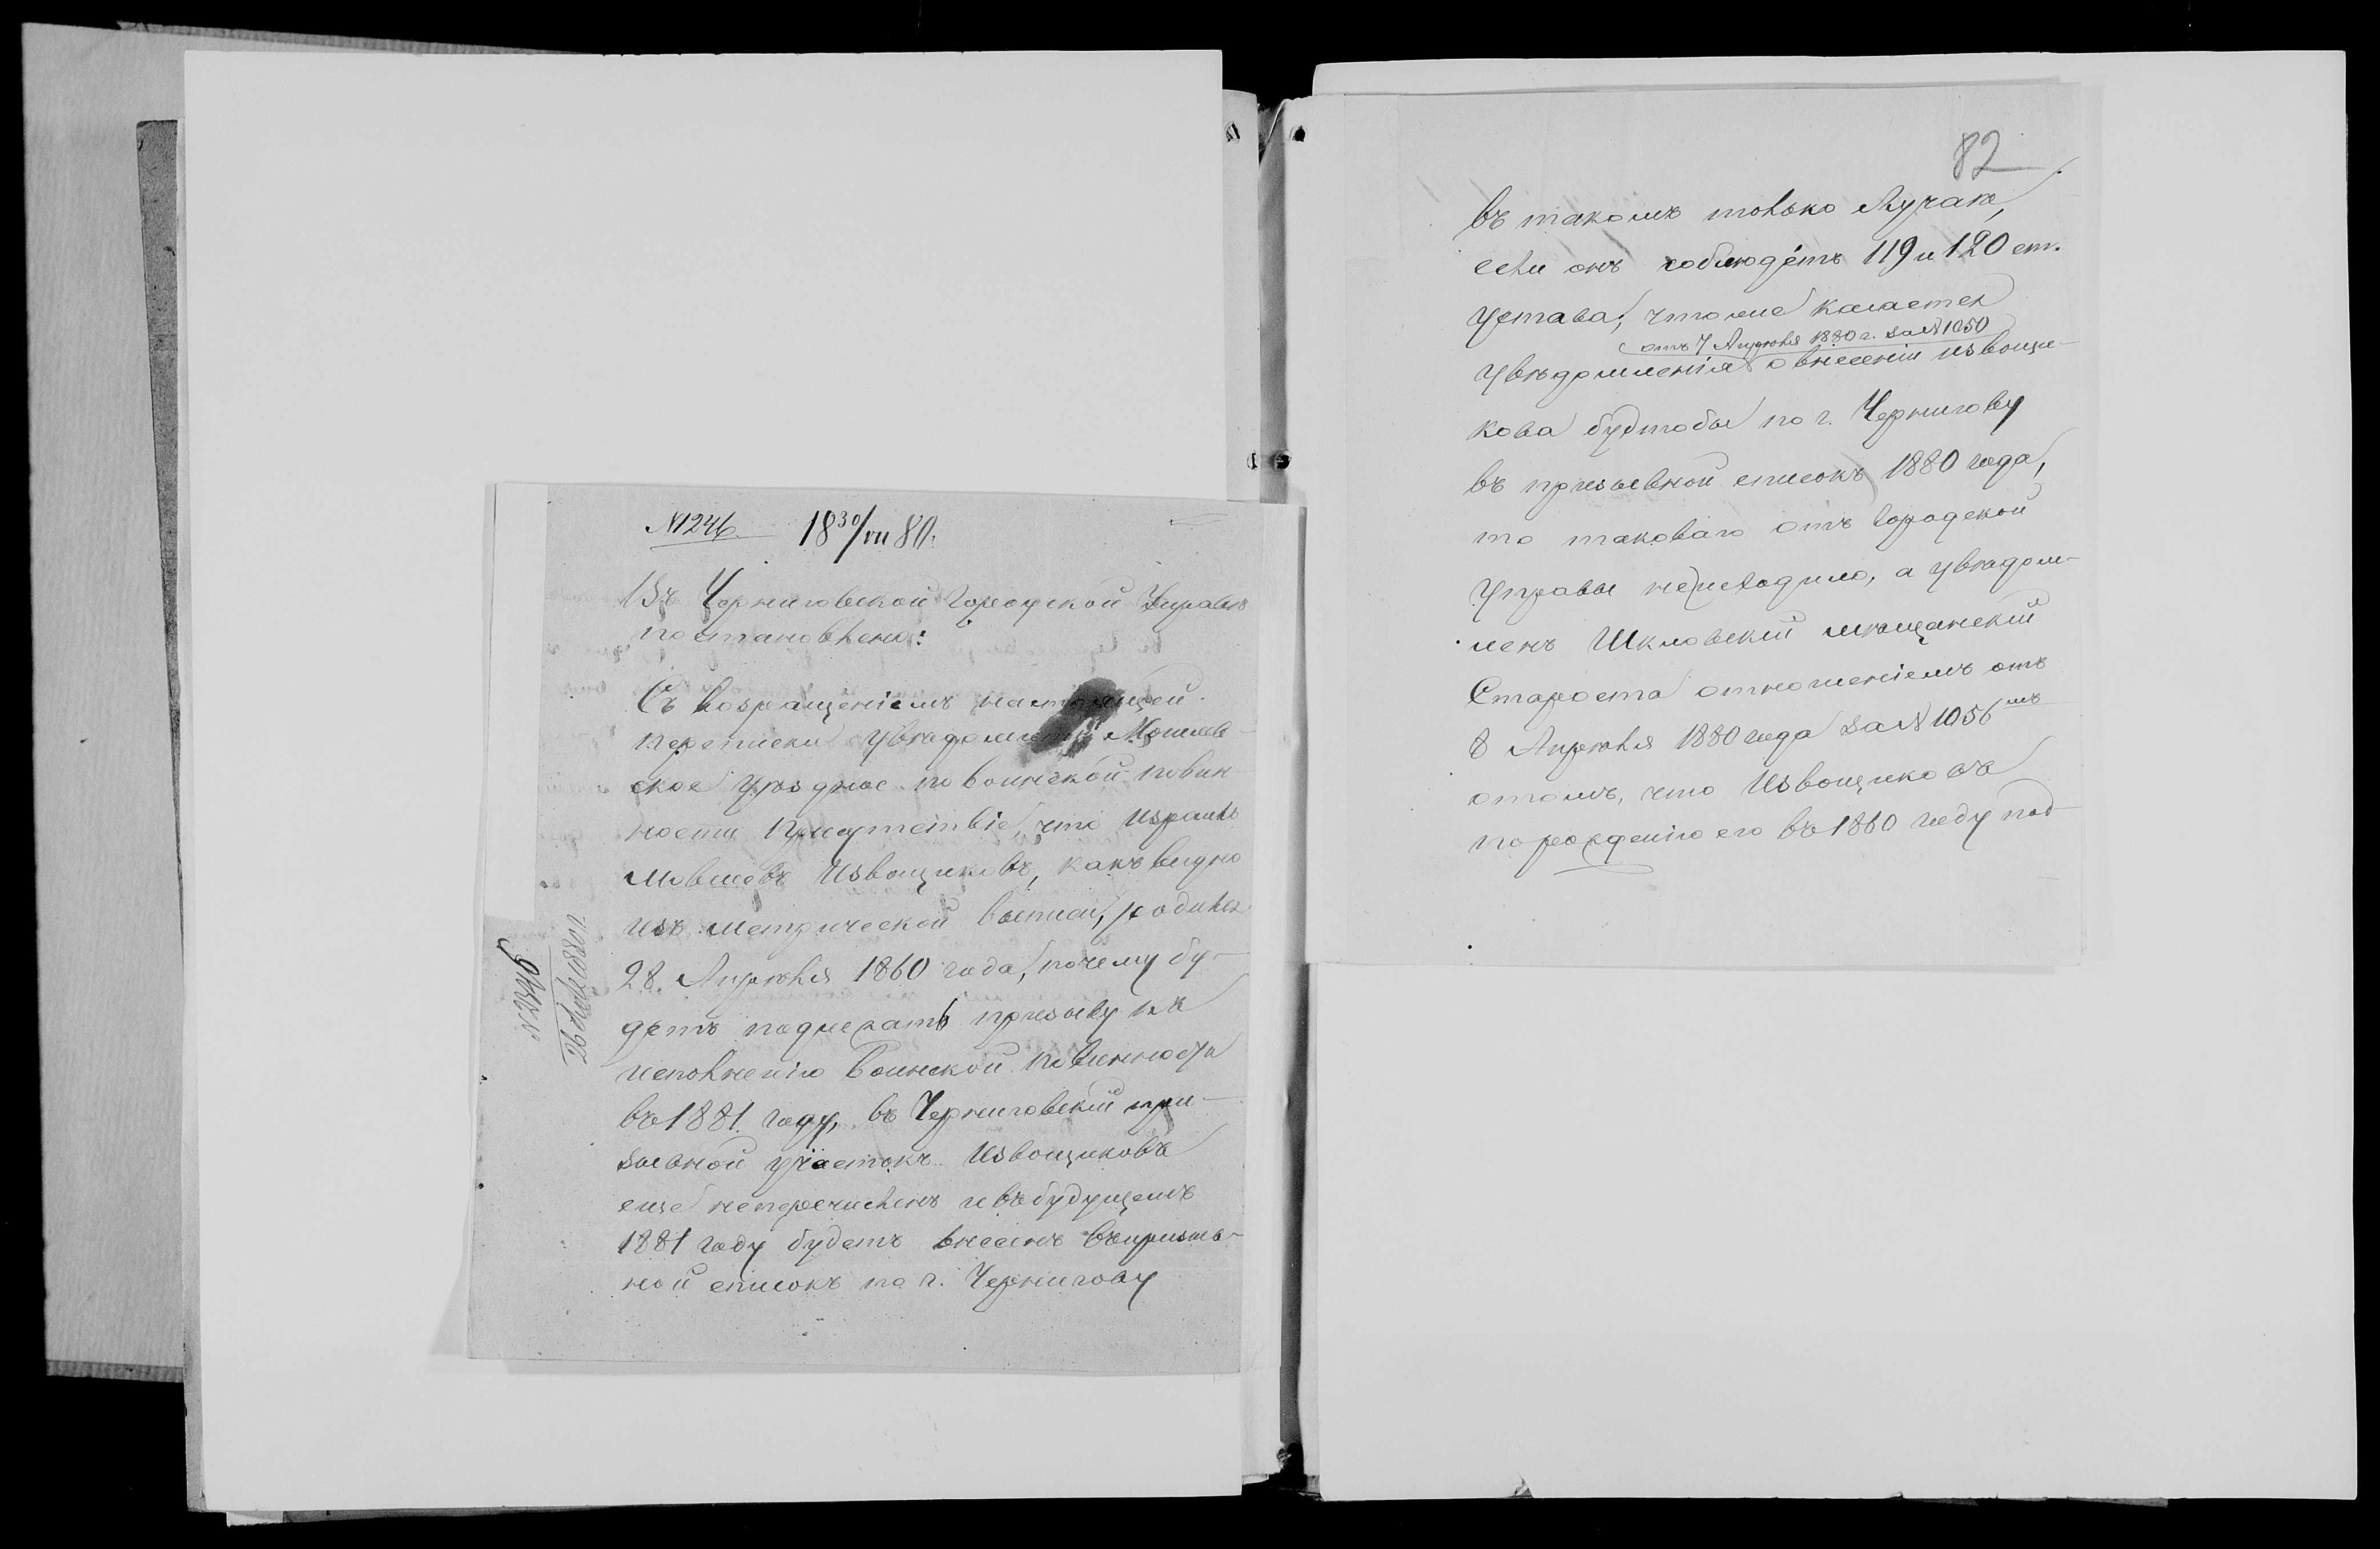 № 1246. 18 30/VII 80.
Въ Черниговской Городской Управѣ
постановлено:
Съ возращеніемъ настоящей
переписки увѣдомить Могилев-
ское уѣздное по воинской повин-
ности Присутствіе, что Израиль
Мовшевъ Извощиковъ, какъ видно
изъ метрической выписи, родился
28 Апрѣля 1860 года, почему бу-
детъ подлежать призыву къ
исполненію воинской повинности
въ 1881 году, въ Черниговскій при-
зывной участокъ Извощиковъ
еще неперечисленъ и въ будущемъ
1881 году будетъ внесенъ въ призыв-
ной списокъ по г. Чернигову
№ 2396
26 1880 г.
82
въ такомъ только случаѣ,
если онъ соблюдётъ 119 и 120 ст.
устава; что же касается
отъ 7 Апрѣля 1880 г. за № 1050
увѣдомленія о внесеніи Извощи-
кова будтобы по г. Чернигову
въ призывной списокъ 1880 года,
то таковаго отъ Городской
Управы неисходило, а увѣдом-
ленъ Шкловскій мѣщанскій
Староста отношеніемъ отъ
8 Апрѣля 1880 года за № 1056мъ
отомъ, что Извощиковъ
по рожденію его въ 1860 году под-